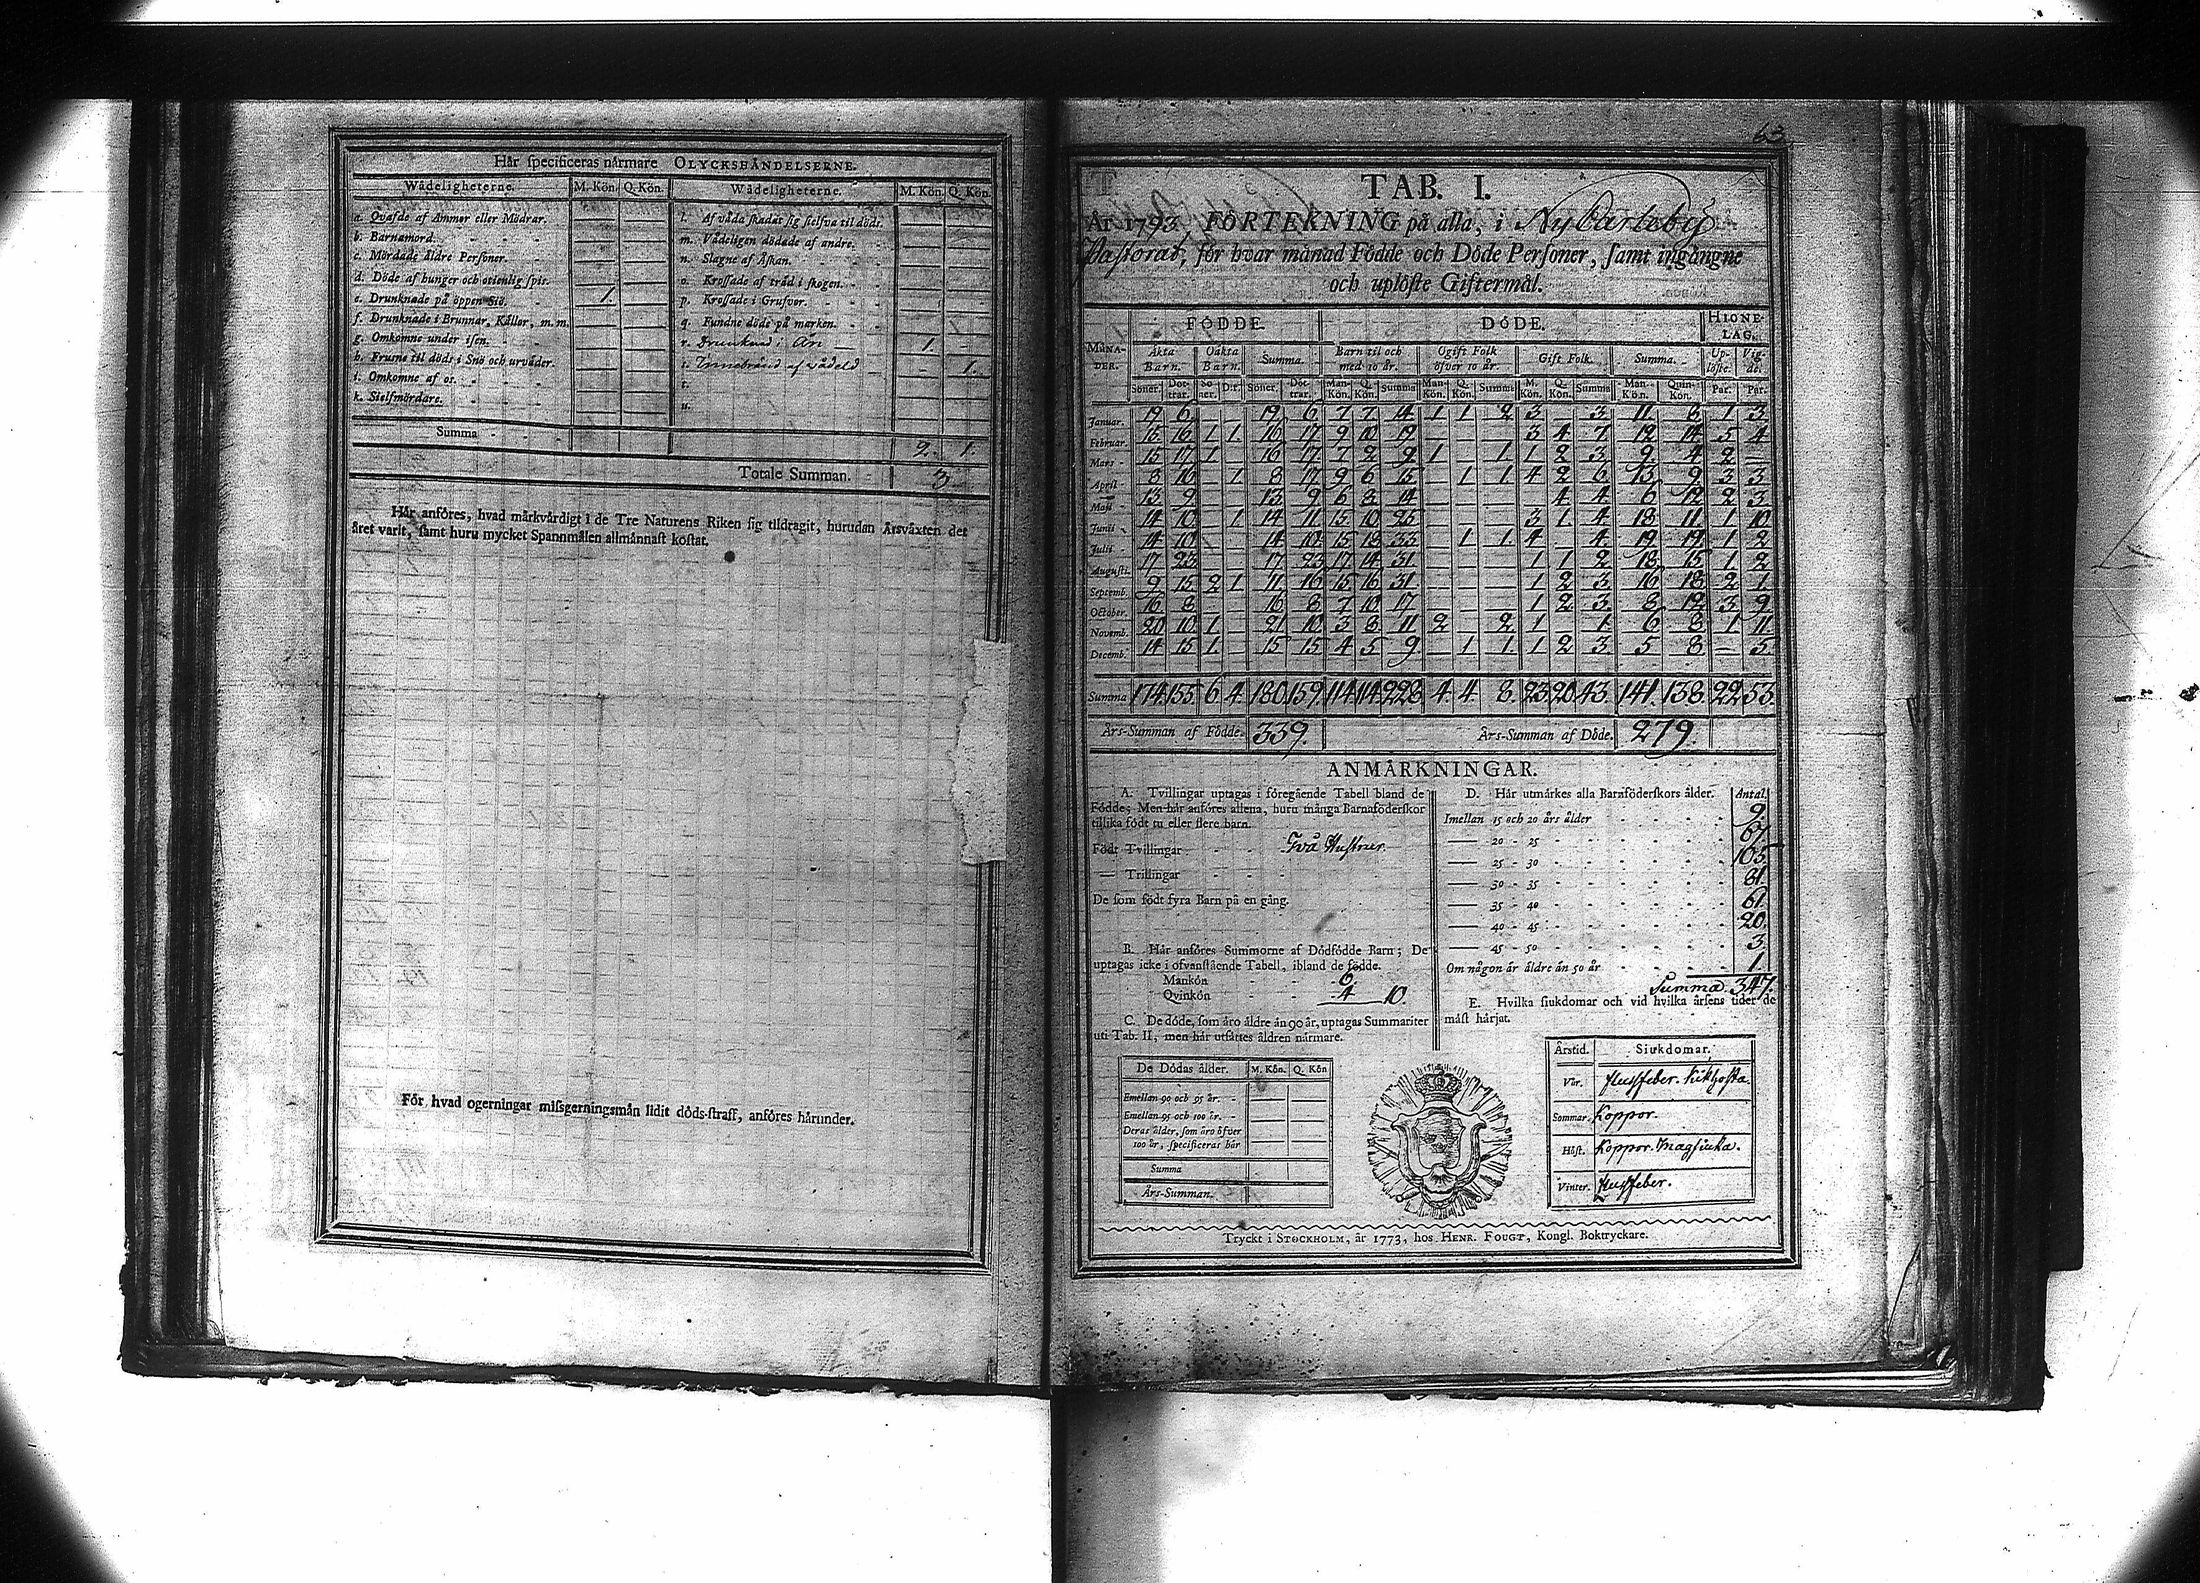 Här specificeras närmare OLYCKSHÅNDELSERNE.
Wådeligheterne. M. Kön. Q. Kön. Wådeligheterne. M. Kön. Q. Kön.
a. Qvafde af Ammor eller Mödrar.
b. Barnamord.
c. Mördade äldre Personer.
d. Döde af hunger och otienlig spis.
e. Drunknade på öppen Siö. 1.
f. Drunknade i Brunnar, Källor, m.m.
g. Omkomne under isen.
h. Frusne til döds i Snö och urväder.
i. Omkomne af os.
k. Sielfmördare.
l. Af våda skadat sig sielfva til döds.
m. Vådeligen dödade af andre.
n. Slagne af Åskan.
o. Krossade af träd i skogen.
p. Krossade i Grufvor.
q. Fundne döde på marken.
r. Drunknad i Ån 1.
s. Innebränd af vådeld 1.
t.
u.
Summa 2. 1.
Totale Summan. 3
Här anföres, hvad märkvärdigt i de Tre Naturens Riken sig tildragit, hurudan Årsväxten det
året varit, samt huru mycket Spannmålen allmännast kostat.
För hvad ogerningar missgerningsmän lidit döds-straff, anföres härunder.
63
TAB. I.
År 1793, FÖRTEKNING på alla, i Ny Carleby
Pastorat, för hvar månad Födde och Döde Personer, samt ingångne
och uplöste Giftermål.
FÖDDE. DÖDE. HIONE-LAG.
MÅNADER. Äkta Barn. Oäkta Barn. Summa. Barn til och med 10 år. Ogift Folk öfver 10 år. Gift Folk. Summa. Uplöste. Vigde.
Söner. Döttrar. Söner. D:r. Söner. Döttrar. Mankön. Q. Kön. Summa Mankön. Q. Kön. Summa M. Kön. Q. Kön. Summa Mankön. Quinkön. Par. Par.
Januar. 19 6 19 6 7 7 14 1 1 2 3 3 11 8 1 3
Februar. 15 16 1 1 16 17 9 10 19 3 4 7 12 14 5 4
Mars 15 17 1 16 17 7 2 9 1 1 1 2 3 9 4 2
April 8 16 1 8 17 9 6 15 1 1 4 2 6 13 9 3 3
Maji 13 9 13 9 6 8 14 4 4 6 12 2 3
Junii 14 10 1 14 11 15 10 25 3 1 4 18 11 1 10
Julii 14 10 14 10 15 18 33 1 1 4 4 19 19 1 2
Augusti. 17 23 17 23 17 14 31 1 1 2 18 15 1 2
Septemb. 9 15 2 1 11 16 15 16 31 1 2 3 16 18 2 1
October. 16 8 16 8 7 10 17 1 2 3 8 12 3 9
Novemb. 20 10 1 21 10 3 8 11 2 2 1 1 6 8 1 11
Decemb. 14 15 1 15 15 4 5 9 1 1 1 2 3 5 8 5
Summa 174 155 6 4 180 159 114 114 228 4 4 8 23 20 43 141 138 22 53
Års-Summan af Födde. 339. Års-Summan af Döde. 279.
ANMÄRKNINGAR.
A. Tvillingar uptagas i föregående Tabell bland de
Födde; Men här anföres allena, huru många Barnaföderskor
tillika födt tu eller flere barn.
Födt Tvillingar Två Hustrur.
— Trillingar
De som födt fyra Barn på en gång.
B. Här anföres Summorne af Dödfödde Barn; De
uptagas icke i ofvanstående Tabell, ibland de födde.
Mankön 6.
Qvinkön 4 10.
C. De döde, som äro äldre än 90 år, uptagas Summariter
uti Tab. II, men här utsättes åldren närmare.
De Dödas ålder. M. Kön. Q. Kön
Emellan 90 och 95 år.
Emellan 95 och 100 år.
Deras ålder, som äro öfver
100 år, specificeras här
Summa
Års-Summan.
D. Här utmärkes alla Barnföderskors ålder. Antal
Imellan 15 och 20 års ålder 9.
20 - 25 67.
25 - 30 105.
30 - 35 81.
35 - 40 61.
40 - 45 20.
45 - 50 3.
Om någon är äldre än 50 år 1.
Summa. 347.
E. Hvilka siukdomar och vid hvilka årsens tider de
mäst härjat.
Årstid. Siukdomar.
Vår. flussfeber. Kikhosta.
Sommar. Koppor.
Höst. Koppor. Magsiuka.
Vinter. flussfeber.
Tryckt i STOCKHOLM, år 1773, hos HENR. FOUGT, Kongl. Boktryckare.